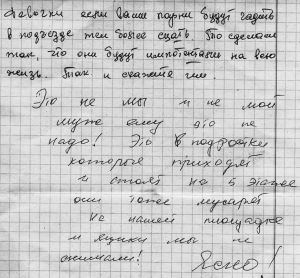 Девочки если ваши парни будут гадить
в подъезде тем более ссать. То сделаю
так, что они будут импотентами на всю
жизнь. Так и скажите им.
Это не мы и не мой
муж ему это не
надо! Это подростки
которые приходят
и стоят на 5 этаже
они тоже мусорят
на нашей площадке
и ящики мы не
снимали!
Ясно!